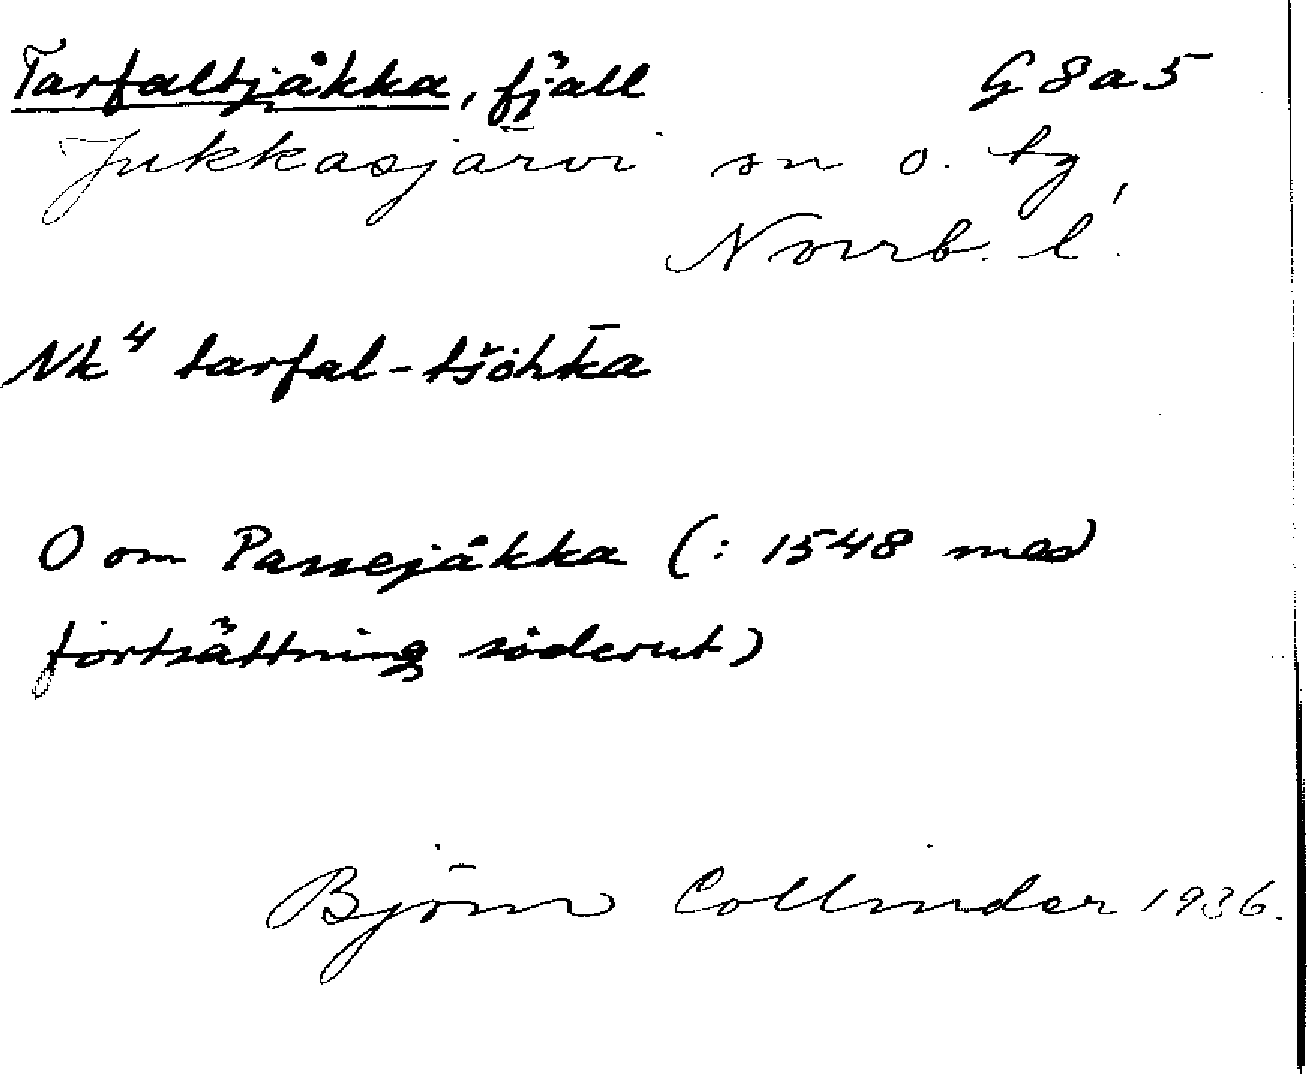 Tarfaltjåkka, fjäll G8a5
Jukkasjärvi sn o. tg
Norrb. l.
Nk⁴ tarfal-tšǒhk̄a
O om Passejåkka (: 1548 med
fortsättning söderut)
Björn Collinder 1936.